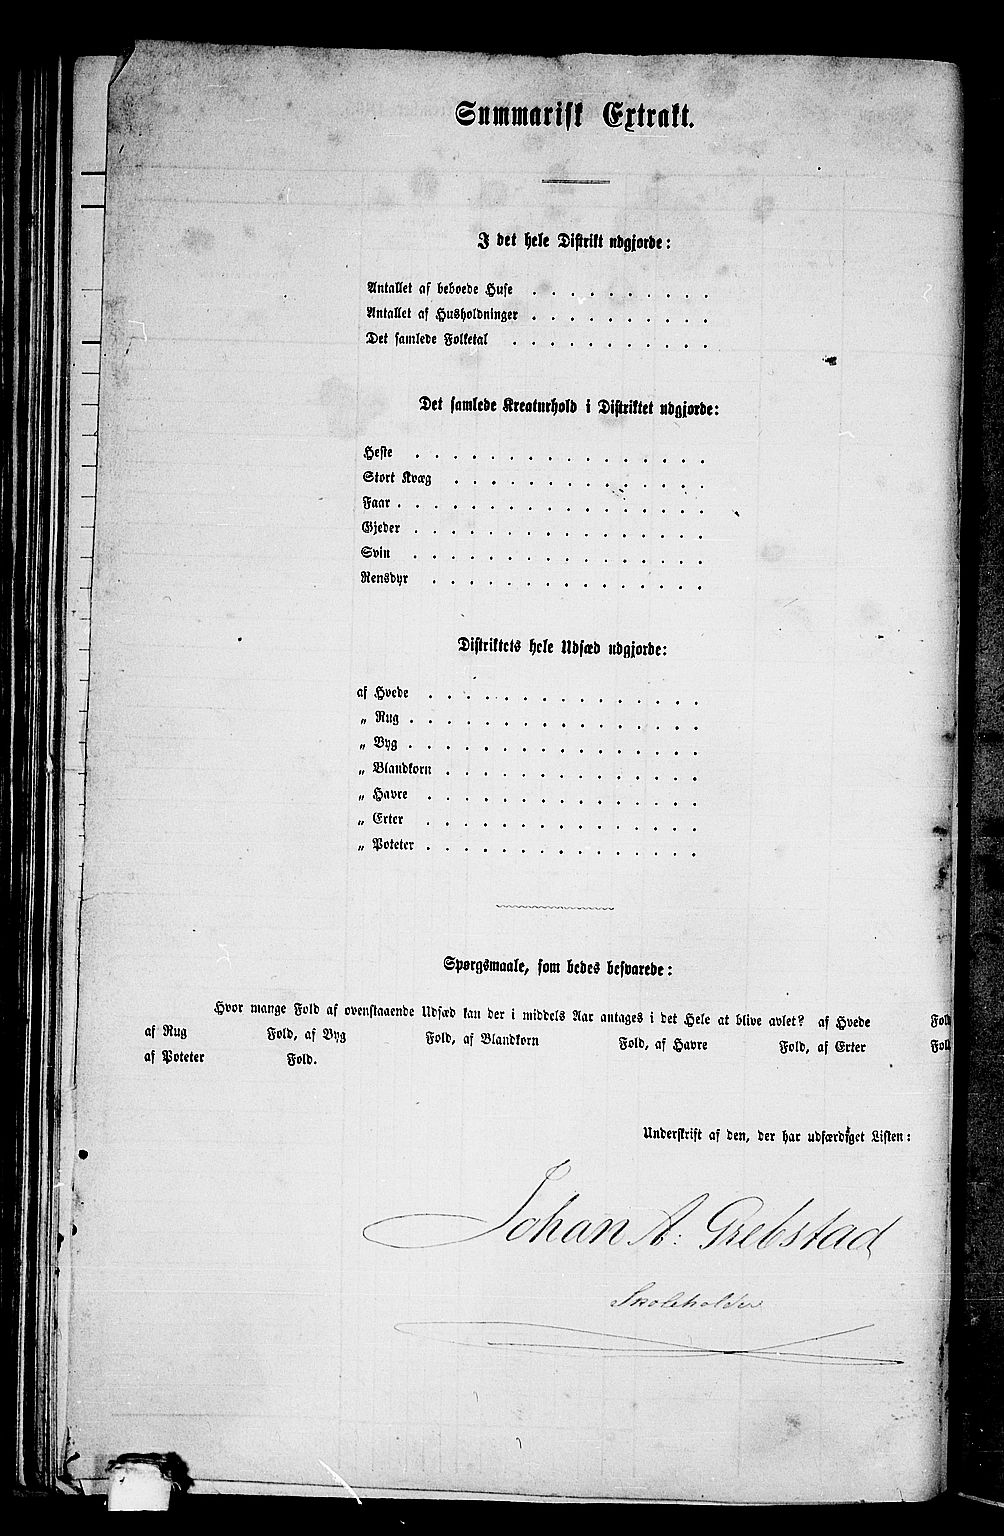 Summarisk Extrakt.
I det hele Distrikt udgjorde:
Antallet af beboede Huse . . . . . . . . . .
Antallet af Husholdninger . . . . . . . . . .
Det samlede Folketal . . . . . . . . . . .
Det samlede Kreaturhold i Distriktet udgjorde:
Heste . . . . . . . . . . . . . . . .
Stort Kvæg . . . . . . . . . . . . . .
Faar . . . . . . . . . . . . . . . . .
Gjeder . . . . . . . . . . . . . . . .
Svin . . . . . . . . . . . . . . . .
Rensdyr . . . . . . . . . . . . . . .
Distriktets hele Udsæd udgjorde:
af Hvede . . . . . . . . . . . . . . .
„ Rug . . . . . . . . . . . . . . . .
„ Byg . . . . . . . . . . . . . . . .
„ Blandkorn . . . . . . . . . . . . . .
„ Havre . . . . . . . . . . . . . . .
„ Erter . . . . . . . . . . . . . . .
„ Poteter . . . . . . . . . . . . . . .
Spørgsmaale, som bedes besvarede:
Hvor mange Fold af ovenstaaende Udsæd kan der i middels Aar antages i det Hele at blive avlet? af Hvede Fold
af Rug Fold, af Byg Fold, af Blandkorn Fold, af Havre Fold, af Erter Fold
af Poteter Fold.
Underskrift af den, der har udfærdiget Listen:
Johan A: Grebstad
Skoleholder